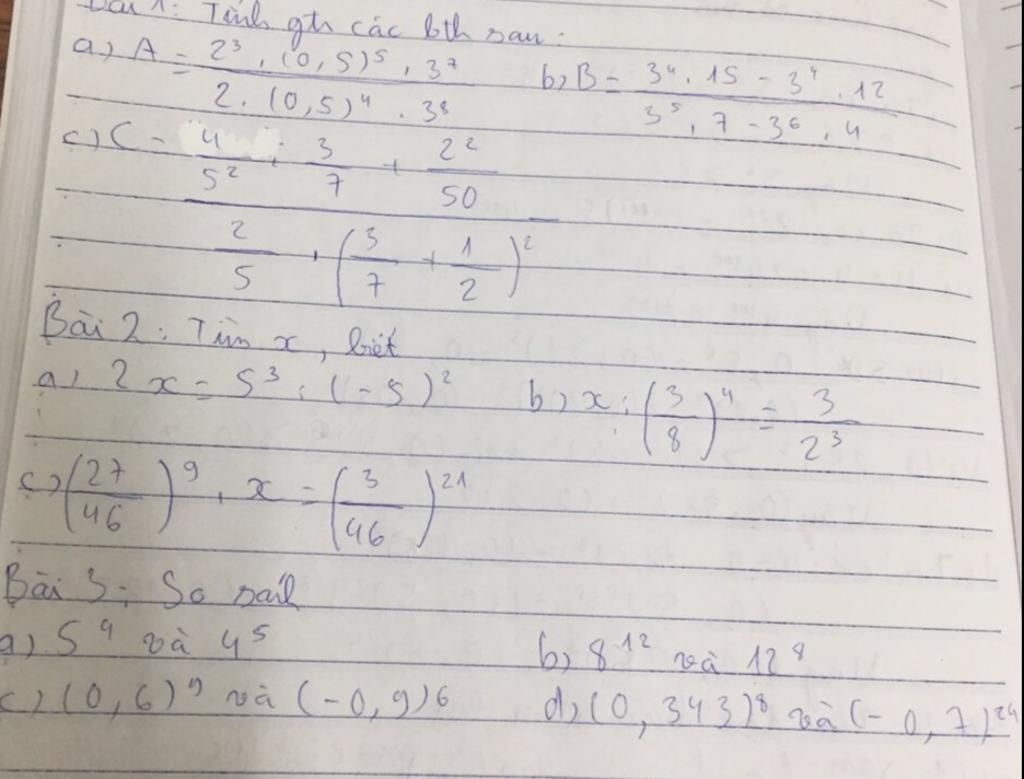 Bài 1: Tính gtr các bth sau:
a) A = 2³ . (0,5)⁵ . 3⁷ / 2 . (0,5)⁴ . 3⁸ b) B = 3⁴ . 15 - 3⁴ . 12 / 3⁵ . 7 - 3⁶ . 4
c) C = (4/5² . 3/7 + 2²/50) / (2/5 . (3/7 + 1/2)²)
Bài 2: Tìm x, biết
a) 2x = 5³ : (-5)² b) x : (3/8)⁴ = 3/2³
c) (27/46)⁹ . x = (3/46)²¹
Bài 3: So sánh
a) 5⁴ và 4⁵ b) 8¹² và 12⁸
c) (0,6)⁹ và (-0,9)6 d) (0,343)⁸ và (-0,7)²⁴